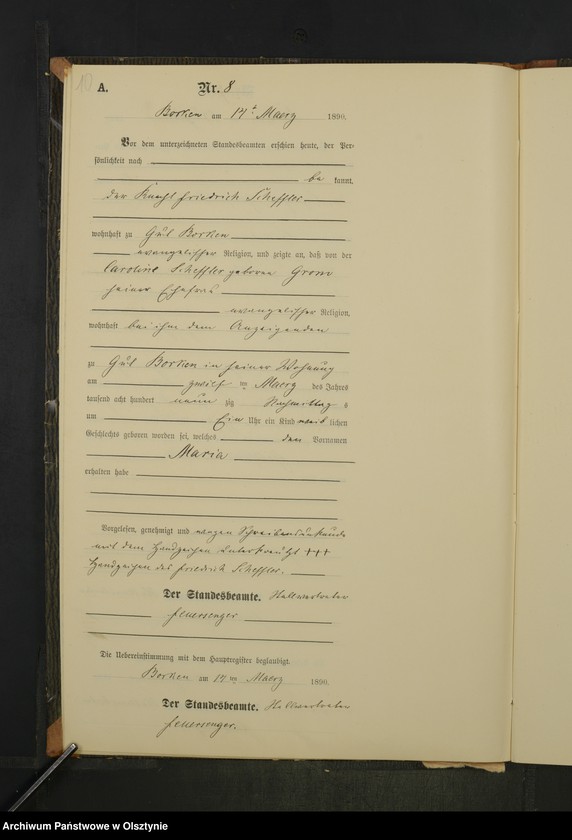 10
A. Nr. 8
Borken am 14 t Maerz 1890.
Vor dem unterzeichneten Standesbeamten erschien heute, der Per-
sönlichkeit nach
be kannt,
der Knecht Friedrich Scheffler
wohnhaft zu Gut Borken
evangelischer Religion, und zeigte an, daß von der
Caroline Scheffler geboren
seiner Ehefrau
evangelischer Religion,
wohnhaft bei ihm dem Anzeigenden
zu Gut Borken in seiner Wohnung
am zwölf ten Maerz des Jahres
tausend acht hundert neun zig Nachmittag s
um Ein Uhr ein Kind weib lichen
Geschlechts geboren worden sei, welches den Vornamen
Maria
erhalten habe
Vorgelesen, genehmigt und wegen Schreibensunkunde
mit dem Handzeichen unterkreuzt +++
Handzeichen des Friedrich Scheffler.
Der Standesbeamte. Stellvertreter
Die Uebereinstimmung mit dem Hauptregister beglaubigt.
Borken am 14 ten Maerz 1890.
Der Standesbeamte. Stellvertreter
Archiwum Państwowe w Olsztynie